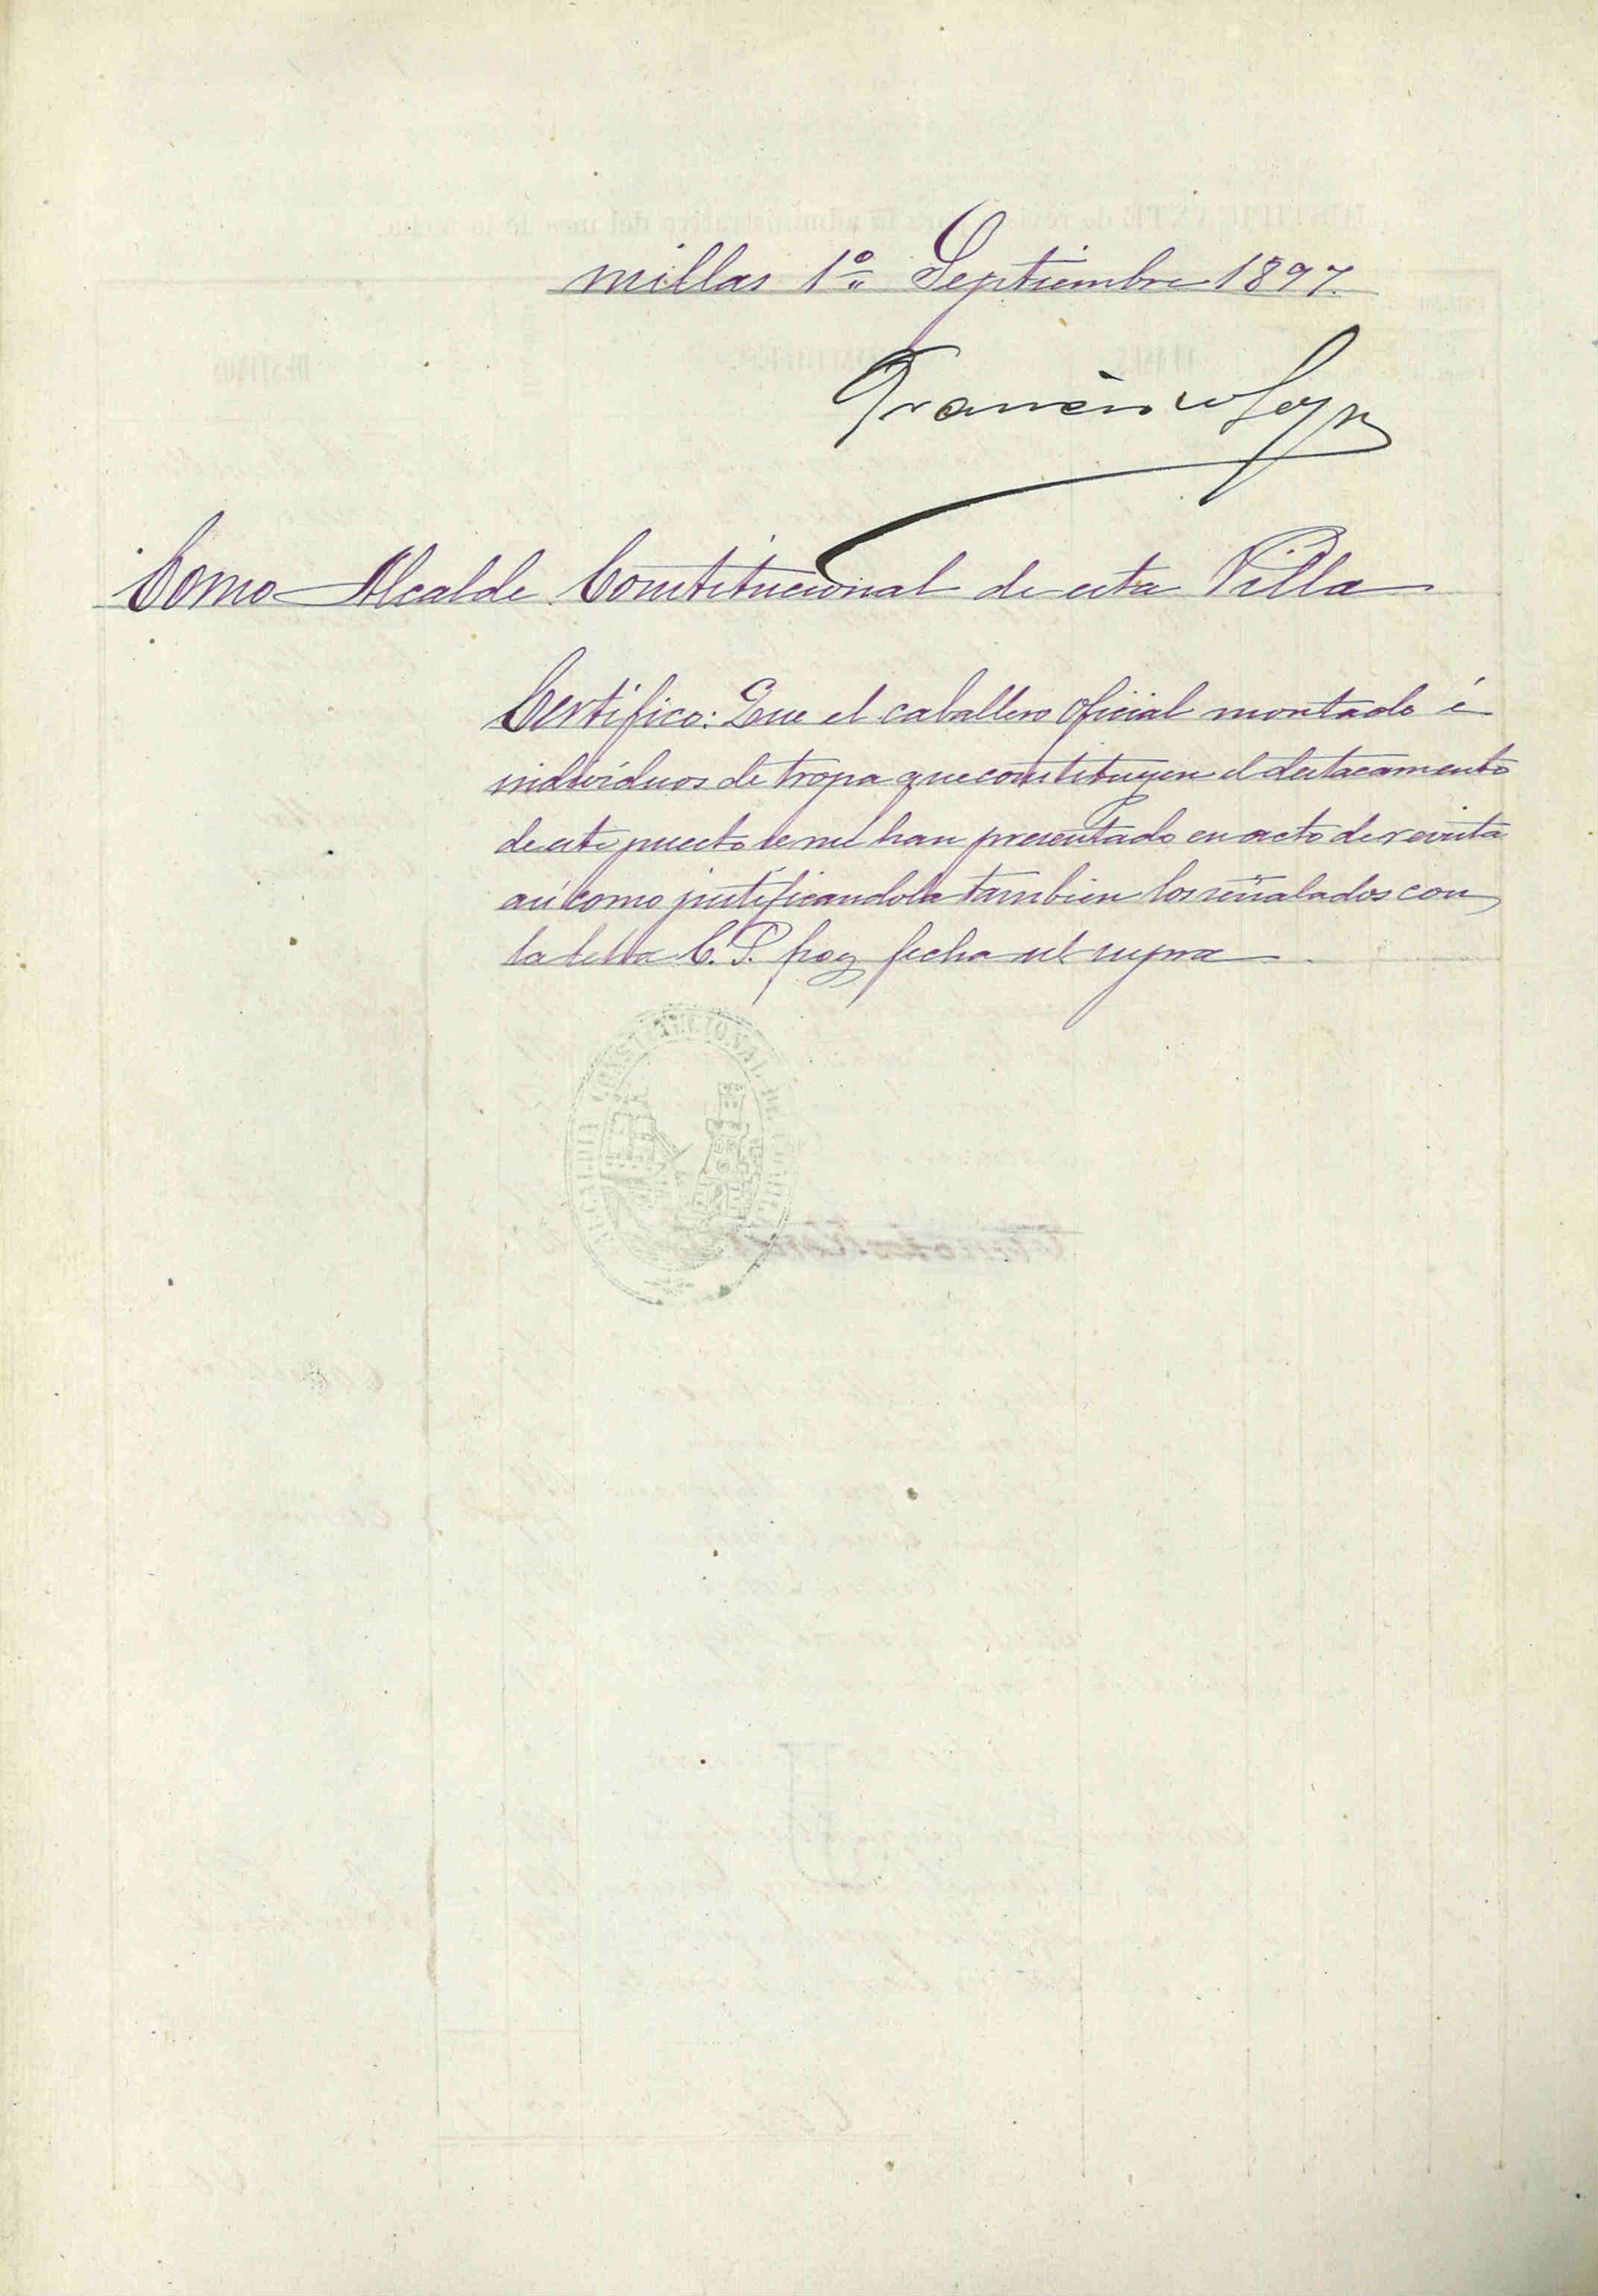 millas 1º Septiembre 1897.
Francisco
Como Alcalde Constitucional de esta Villa
Certifico: Que el caballero Oficial montado é
individuos de tropa que constituyen el destacamento
de este puesto se me han presentado en acto de revista
así como justificandola tambien los señalados con
la letra C.P. hoy fecha ut supra
ALCALDIA CONSTITUCIONAL DE